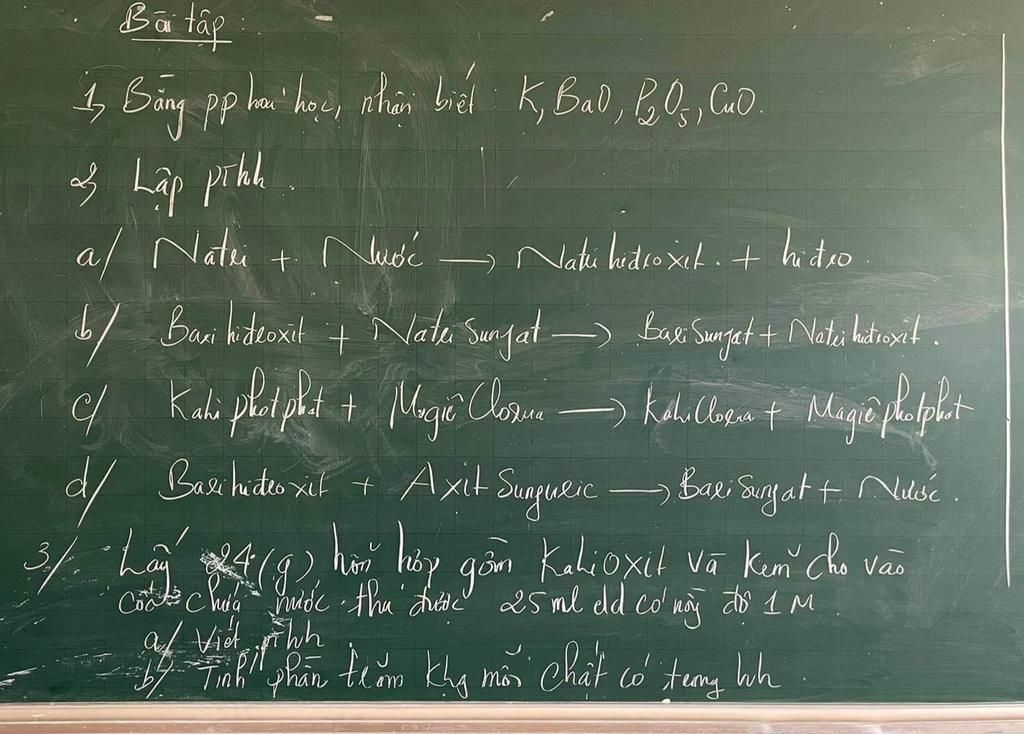 Bài tập :
1, Bằng pp hoá học, nhận biết : K, BaO, P₂O₅, CuO.
2, Lập pthh.
a/ Natri + Nước → Natri hidroxit. + hidro.
b/ Bari hidroxit + Natri Sunfat → Bari Sunfat + Natri hidroxit.
c/ Kali photphat + Magiê Clorua → Kali Clorua + Magiê photphat
d/ Bari hidroxit + Axit Sunfuric → Bari Sunfat + Nước.
3/ Lấy 24 (g) hỗn hợp gồm Kali Oxit và Kẽm cho vào
cốc chứa nước thu được 25ml dd có nồng độ 1M
a/ Viết pthh
b/ Tính phần trăm khg mỗi chất có trong hh.